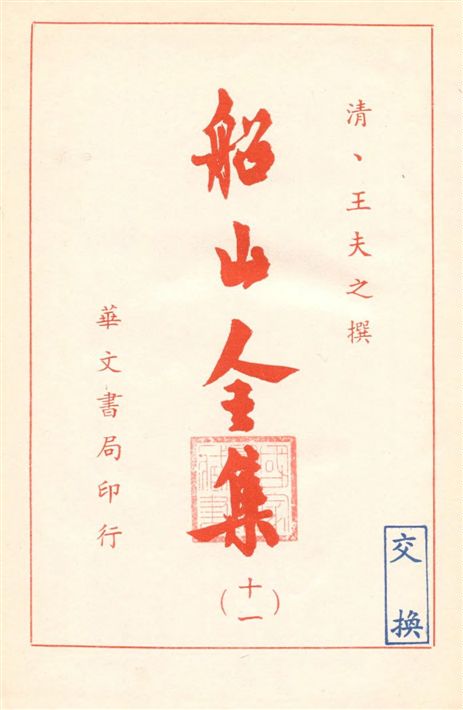 清、王夫之撰
船山全集
(十一)
華文書局印行
交換